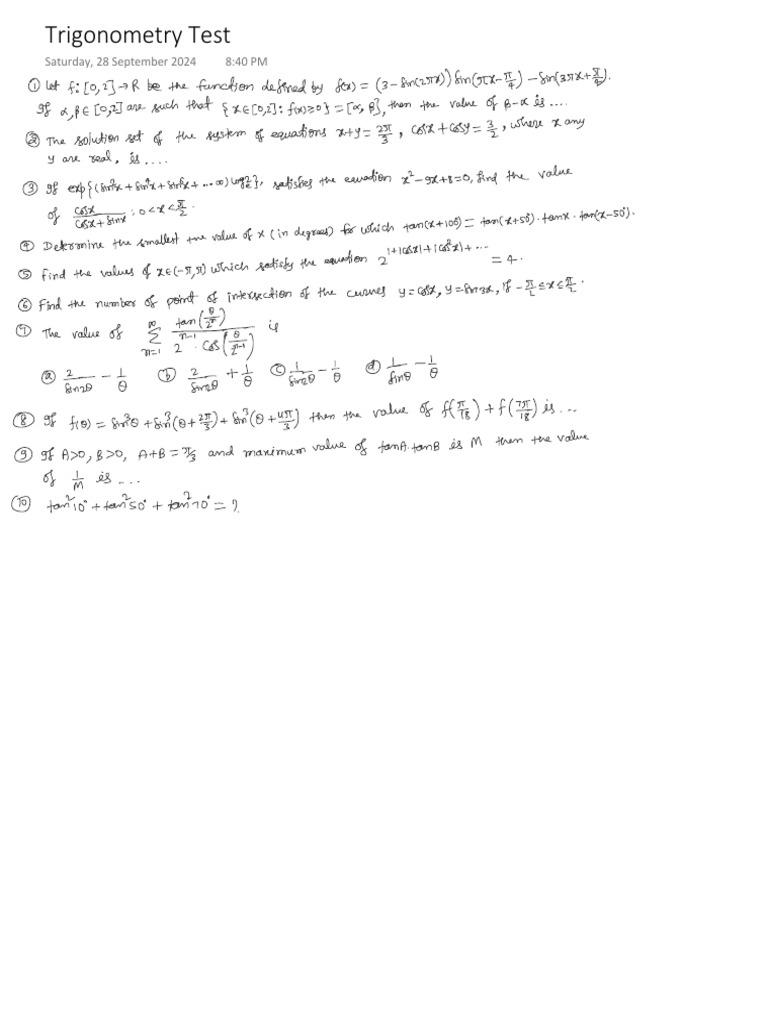 Trigonometry Test
Saturday, 28 September 2024 8:40 PM
① Let f: [0,2] → R be the function defined by f(x) = (3 - sin(2πx)) sin(πx - π/4) - sin(3πx + π/4).
If α, β ∈ [0,2] are such that {x ∈ [0,2] : f(x) ≥ 0} = [α, β], then the value of β - α is ....
② The solution set of the system of equations x+y = 2π/3, cosx + cosy = 3/2, where x any
y are real, is ....
③ If exp{(sin²x + sin⁴x + sin⁶x + ... ∞) log_e 2}, satisfies the equation x² - 9x + 8 = 0, find the value
of cosx/(cosx + sinx) : 0 < x < π/2.
④ Determine the smallest +ve value of x (in degrees) for which tan(x+100) = tan(x+50°). tanx. tan(x-50°).
⑤ Find the values of x ∈ (-π, π) which satisfy the equation 2^(1+|cosx|+|cos²x|+...) = 4.
⑥ Find the number of point of intersection of the curves y = cosx, y = sin3x, if -π/2 ≤ x ≤ π/2.
⑦ The value of ∞Σn=1 tan(θ/2ⁿ) / (2^(n-1) . cos(θ/2^(n-1))) is
ⓐ 2/sin2θ - 1/θ ⓑ 2/sin2θ + 1/θ ⓒ 1/sin2θ - 1/θ ⓓ 1/sinθ - 1/θ
⑧ If f(θ) = sin³θ + sin³(θ + 2π/3) + sin³(θ + 4π/3) then the value of f(π/18) + f(7π/18) is ...
⑨ If A>0, B>0, A+B = π/3 and maximum value of tanA.tanB is M then the value
of 1/M is ....
⑩ tan²10° + tan²50° + tan²70° = ?